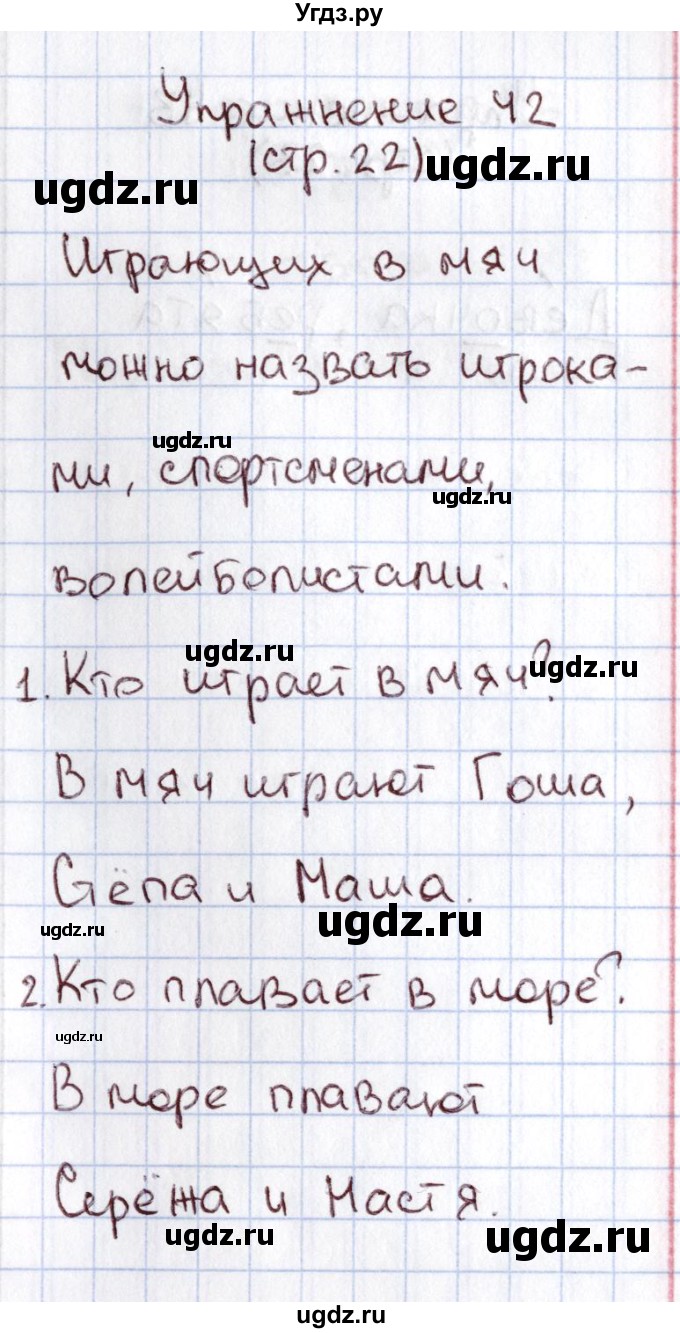 Угдз.ру
Упражнение 42
(стр. 22) ugdz.ru
ugdz.ru
Играющих в мяч
можно назвать игрока-
ugdz.ru
ми, спортсменами,
ugdz.ru
волейболистами.
ugdz.ru
1. Кто играет в мяч?
ugdz.ru
В мяч играют Гоша,
Стёпа и Маша.
ugdz.ru
ugdz.ru
2. Кто плавает в море?
ugdz.ru
В море плавают
Серёжа и Настя.
ugdz.ru
ugdz.ru
ugdz.ru